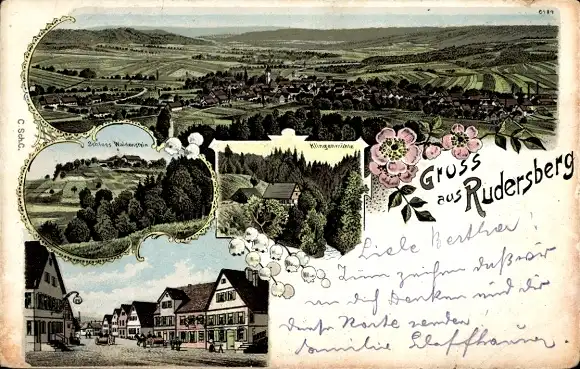 6184
C. Sch.C.
Schloss Waldenstein
Klingenmühle
Gruss
aus Rudersberg
Liebe Bertha!
Zum zeichen daß wir
an dich denken und dir
diese Karte senden
Familie